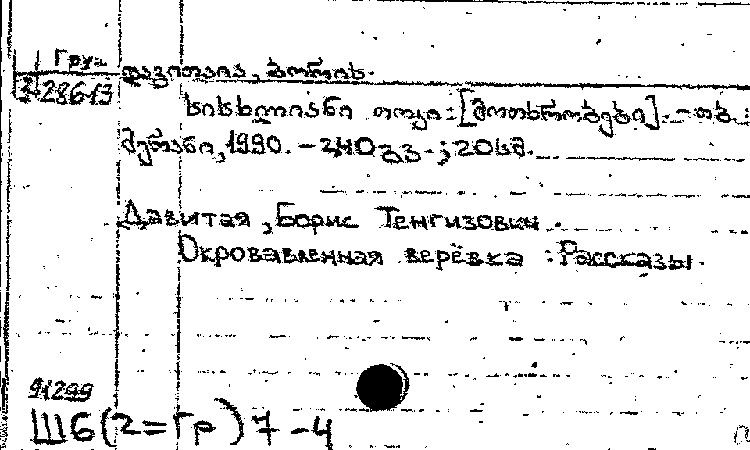 Груз
3-28613
დავითაია, ბორის.
სისხლიანი თოკი : [მოთხრობები]. - თბ. :
მერანი, 1990. - 240 გვ. ; 20 სმ.
Давитая, Борис Тенгизович.
Окровавленная верёвка : Рассказы.
91299
Ш6(2=Гр)7-4